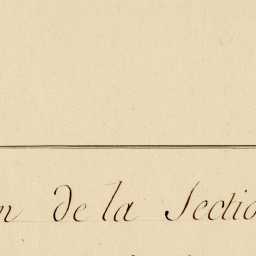 n de la Sectio